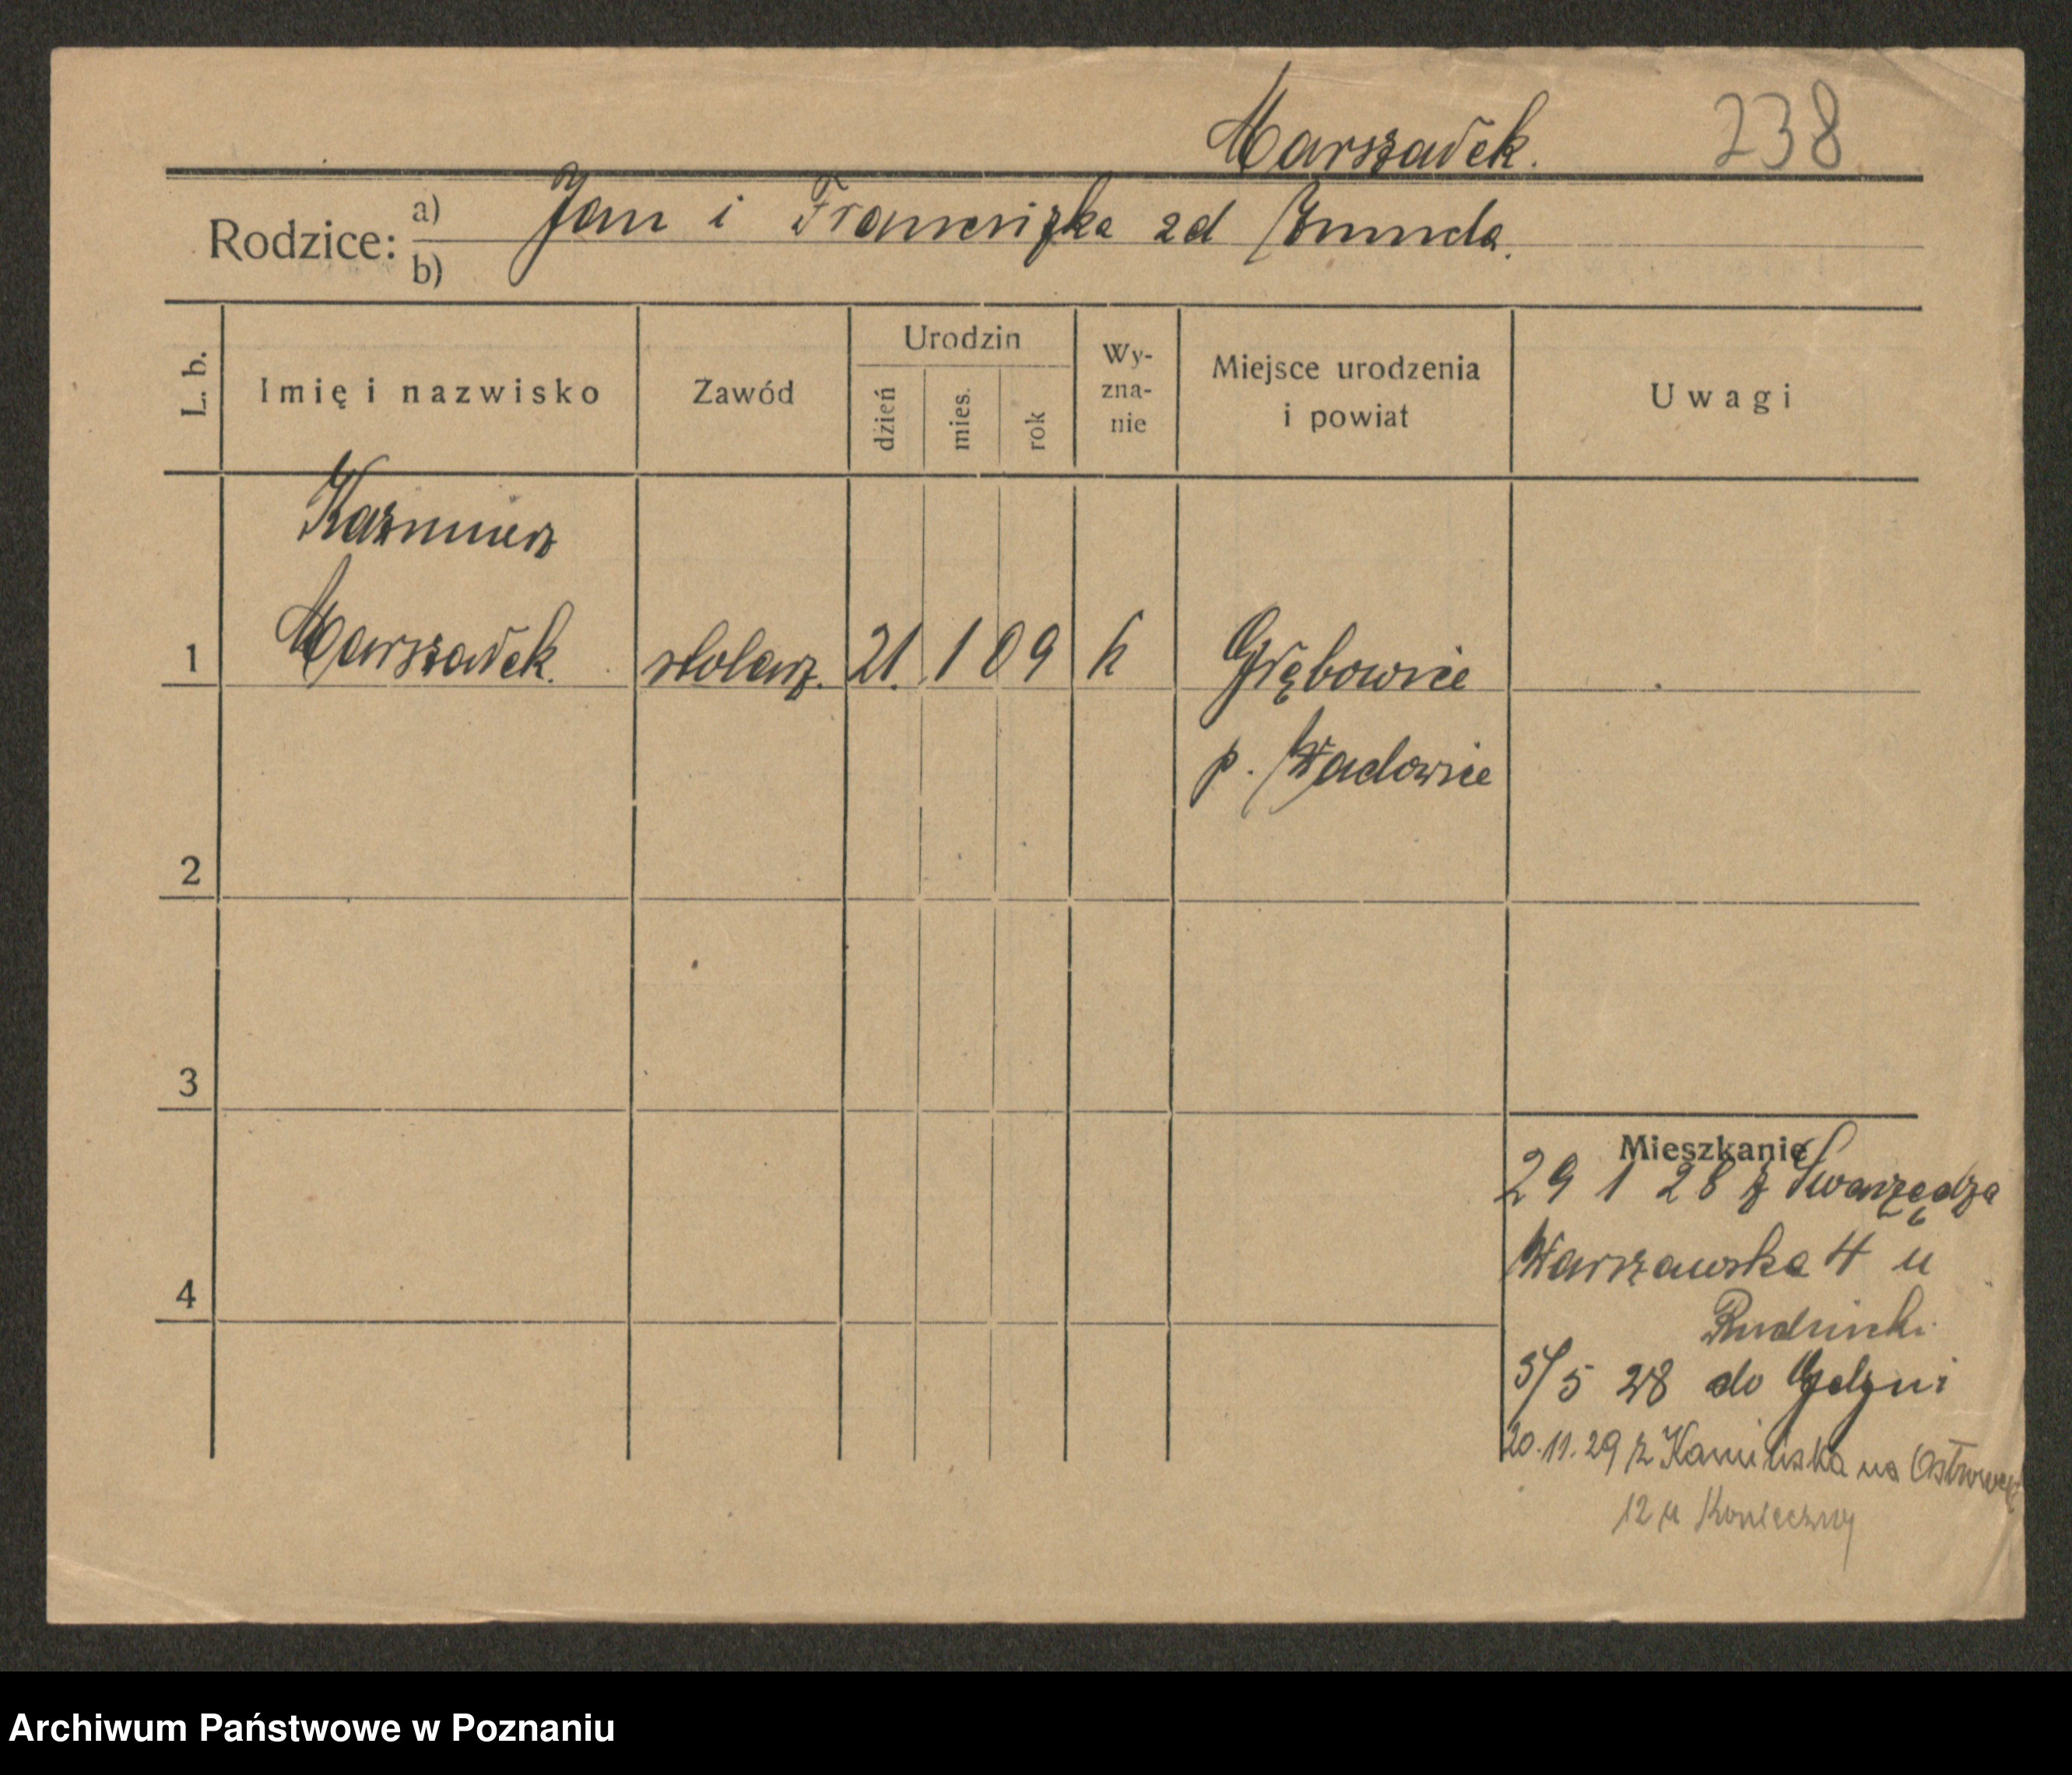 Marszałek. 238
Rodzice: a) Jan i Franciszka zd Żmuda.
b)
L. b. Imię i nazwisko Zawód Urodzin dzień mies. rok Wyzna-nie Miejsce urodzenia i powiat Uwagi
Kazimierz
1 Marszałek. stolarz. 21. 1 09 k Głębowice
p. Wadowice
2
3
Mieszkanie
29 1 28 z Swarzędza
Warszawska 4 u
4 Rudnicki
5/5 28 do Gdyni
20.11.29 z Kamińska na
12 u Konieczny
Archiwum Państwowe w Poznaniu